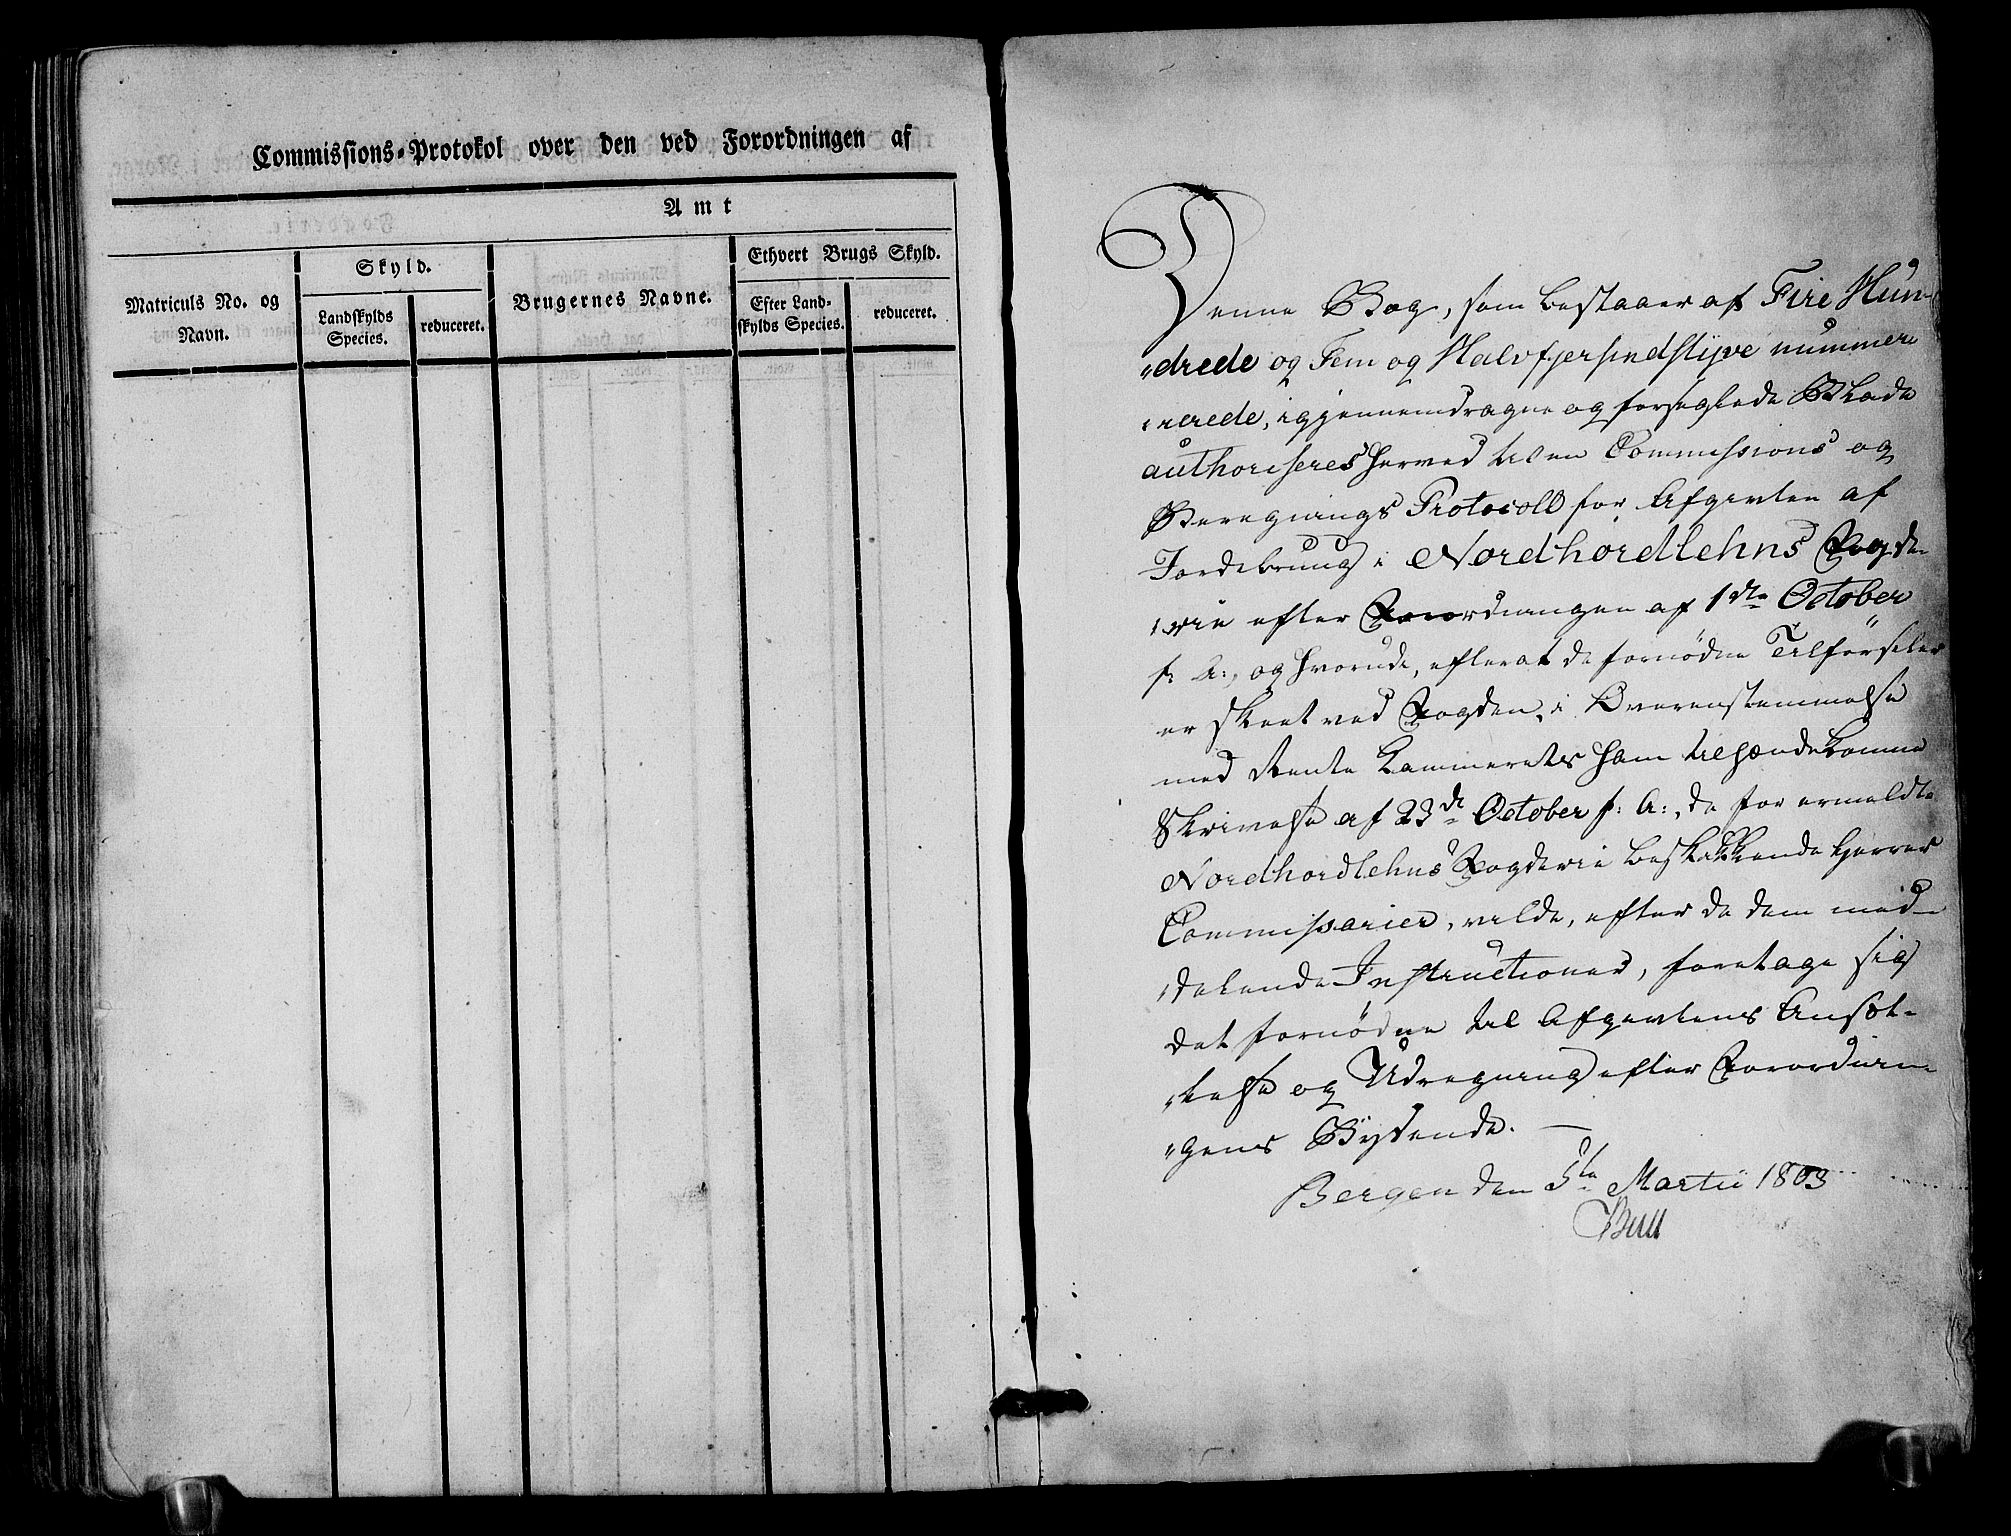 Commissions-Protokol over den ved Forordningen af
Amt
Matriculs No. og
Navn.
Skyld.
Landskylds
Species.
reduceret.
Brugernes Navne.
Ethvert Brugs Skyld.
Efter Land-
skylds Species.
reduceret.
Denne Bog, som bestaaer af Fire Hun-
„drede og Fem og Halvfjersindstyve nummere
„rerede, igjennemdragne og forseglede Blade
authoriseres herved til en Commissions og
Beregnings Protocoll for Afgivten af
Jordebrug i Nordhordlehns Fogde-
„rie efter Forordningen af 1ste October
f: A:, og hvorudi, efterat de fornødne Tilførseler
er skeet ved Fogden, i Overenstemmelse
med Rente Kammerets ham tilhændekomne
Skrivelse af 23de October f: A:, de for ermeldte
Nordhordlehns Fogderie beskikkende Herrer
Commissarier, vilde, efter de dem med-
„delende Instructioner, foretage sig
det fornødne til Afgivtens Ansæt-
„telse og Udregning efter Forordnin-
„gens Bydende. —
Bergen den 5te Martii 1803
Bull